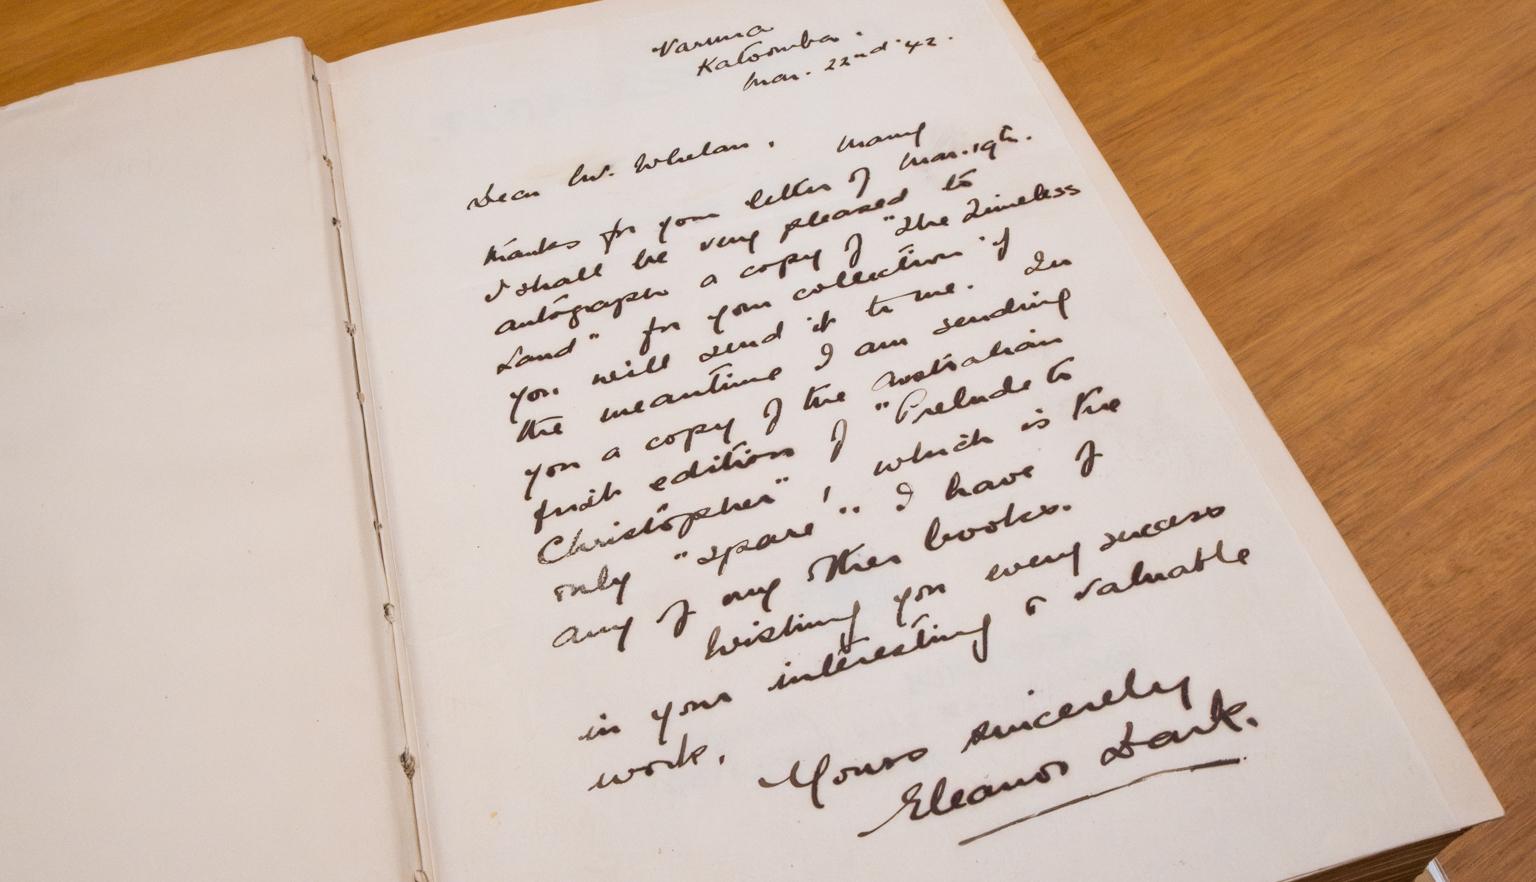 Varuna
Katoomba.
Mar. 22nd '42.
Dear Mr. Whelan, Many
thanks for your letter of Mar. 19th.
I shall be very pleased to
autograph a copy of "The Timeless
Land" for your collection if
you will send it to me. In
the meantime I am sending
you a copy of the Australian
first edition of "Prelude to
Christopher", which is the
only "spare" I have of
any of my other books.
Wishing you every success
in your interesting & valuable
work,
Yours sincerely
Eleanor Dark.